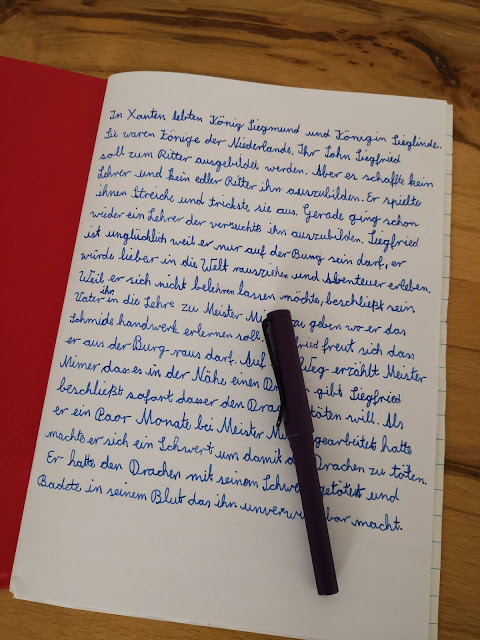 In Xanten lebten König Siegmund und Königin Sieglinde.
Sie waren Könige der Niederlande. Ihr Sohn Siegfried
soll zum Ritter ausgebildet werden. Aber es schaffte kein
Lehrer und kein edler Ritter ihn auszubilden. Er spielte
ihnen Streiche und trickste sie aus. Gerade ging schon
wieder ein Lehrer der versuchte ihn auszubilden. Siegfried
ist unglücklich weil er nur auf der Burg sein darf, er
würde lieber in die Welt rausziehen und Abenteuer erleben.
Weil er sich nicht belehren lassen möchte, beschließt sein
Vater ihn in die Lehre zu Meister geben wo er das
Schmidehandwerk erlernen soll. freut sich dass
er aus der Burg raus darf. Auf Weg erzählt Meister
Mimer das es in der Nähe einen gibt Siegfried
beschließt sofort dasser den töten will. Als
er ein Paar Monate bei Meister gearbeitet hatte
machte er sich ein Schwert um damit Drachen zu töten.
Er hatte den Drachen mit seinem getötet und
Badete in seinem Blut das ihn macht.